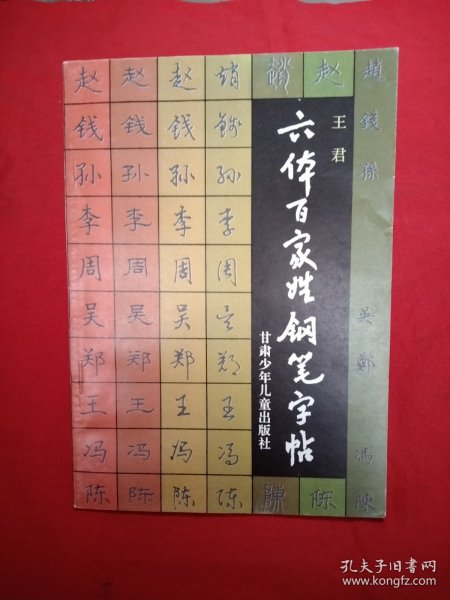 赵 赵 赵 趙 趙 赵 趙
钱 钱 钱 钱 錢
孙 孙 孙 孙 孫
李 李 李 李
周 周 周 周
吴 吴 吴 吴 吳
郑 郑 郑 郑 鄭
王 王 王 王
冯 冯 冯 冯 馮
陈 陈 陈 陈 陳 陈 陳
王君
六体百家姓钢笔字帖
甘肃少年儿童出版社
孔夫子旧书网
www.kongfz.com